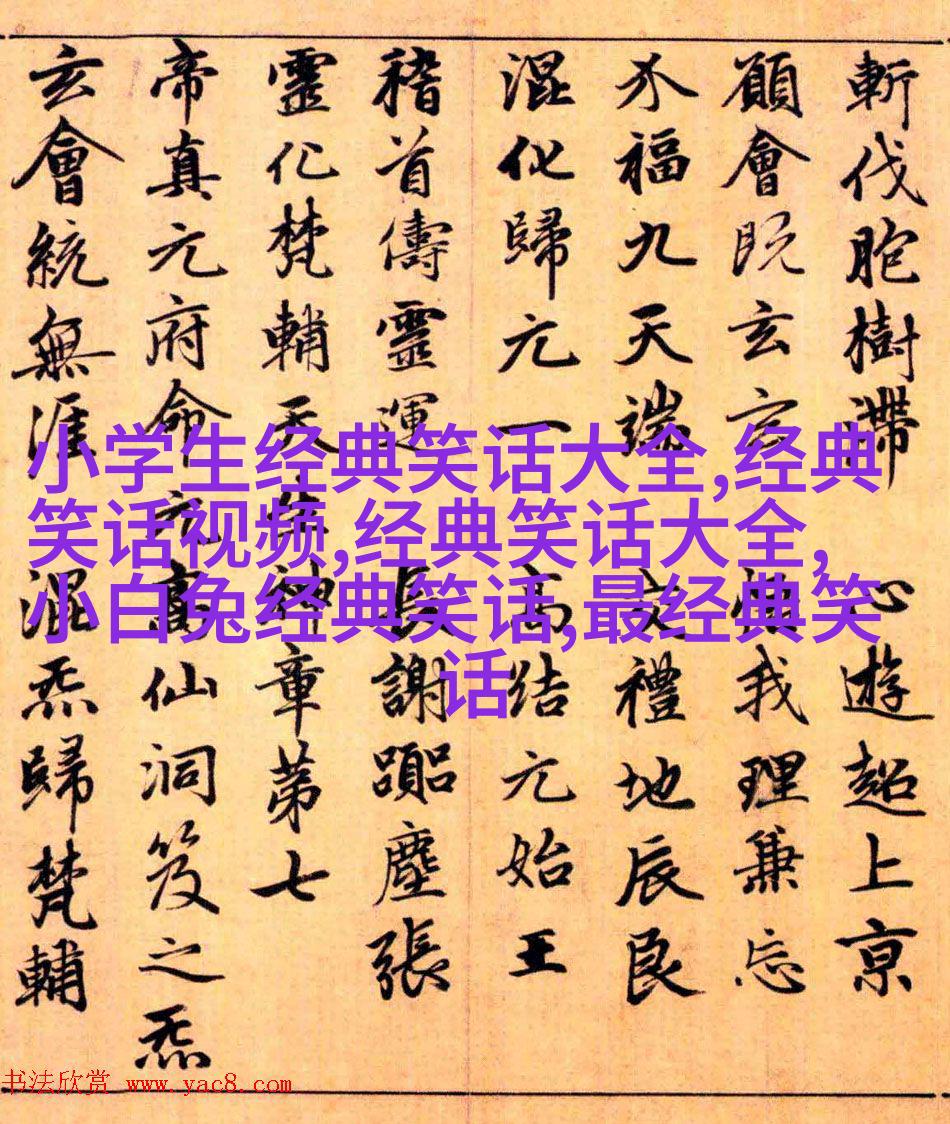 小学生经典笑话大全,经典
笑话视频,经典笑话大全,
小白兔经典笑话,最经典笑
话
斬伐胞樹滯 心遊超上亰
願會既玄玄 悟我理兼忘
介福九天端 交禮地辰良
混化歸元一 高結元始王
稽首儔靈運 長謝躡塵張
靈化梵輔天生神章第七
帝真元府命元高仙洞笈之炁
玄會統無涯 混炁歸梵輔
书法欣赏 www.yac8.com